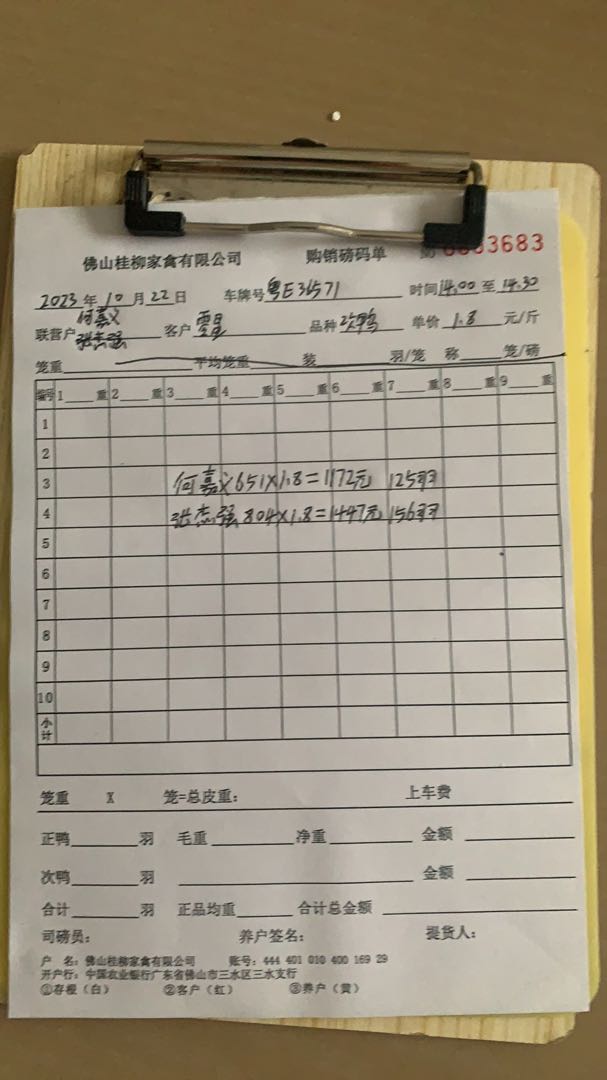 佛山桂柳家禽有限公司 购销磅码单 3683
2023年10月22日 车牌号粤E31571 时间14:00至14:30
何嘉义
联营户张杰强 客户 品种次鸭 单价1.8元/斤
笼重 平均笼重 装 羽/笼 称 笼/磅
编号 1 重 2 重 3 重 4 重 5 重 6 重 7 重 8 重 9 重
1
2
3 何嘉义651×1.8=1172元 125羽
4 张杰强804×1.8=1447元156羽
5
6
7
8
9
10
小计
笼重 X 笼=总皮重: 上车费
正鸭 羽 毛重 净重 金额
次鸭 羽 金额
合计 羽 正品均重 合计总金额
司磅员: 养户签名: 提货人:
户 名:佛山桂柳家禽有限公司 账号:444 401 010 400 169 29
开户行:中国农业银行广东省佛山市三水区三水支行
①存根(白) ②客户(红) ③养户(黄)